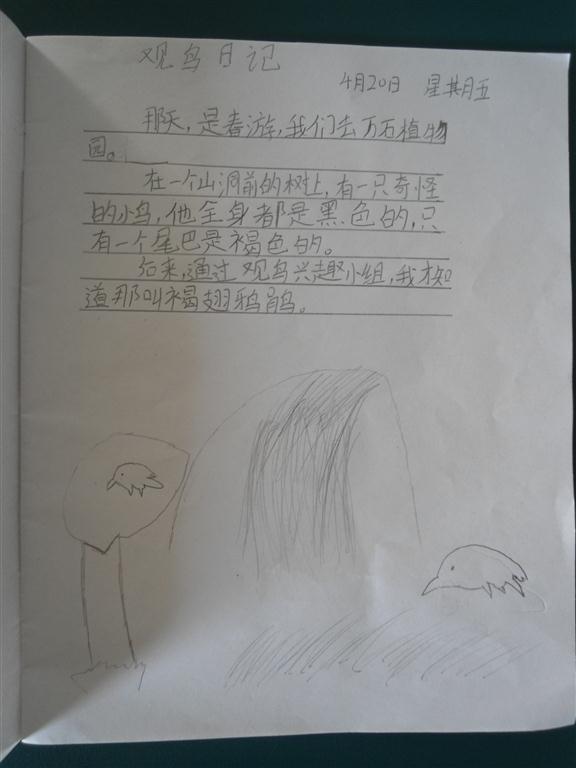 观鸟日记
4月20日 星期五
那天,是春游,我们去万石植物
园。
在一个山洞前的树上,有一只奇怪
的小鸟,他全身都是黑色的,只
有一个尾巴是褐色的。
后来,通过观鸟兴趣小组,我才知
道那叫褐翅鸦鹃。